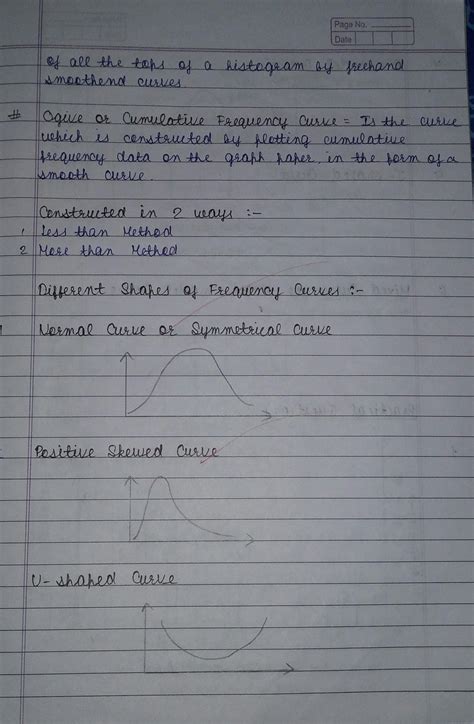 Page No.
Date
of all the tops of a histogram by freehand
smoothend curves
# Ogive or Cumulative Frequency Curve = Is the curve
which is constructed by plotting cumulative
frequency data on the graph paper in the form of a
smooth curve.
Constructed in 2 ways :-
1 Less than Method
2 More than Method
Different Shapes of Frequency Curves :-
Normal Curve or Symmetrical Curve
Positive Skewed Curve
U-shaped Curve